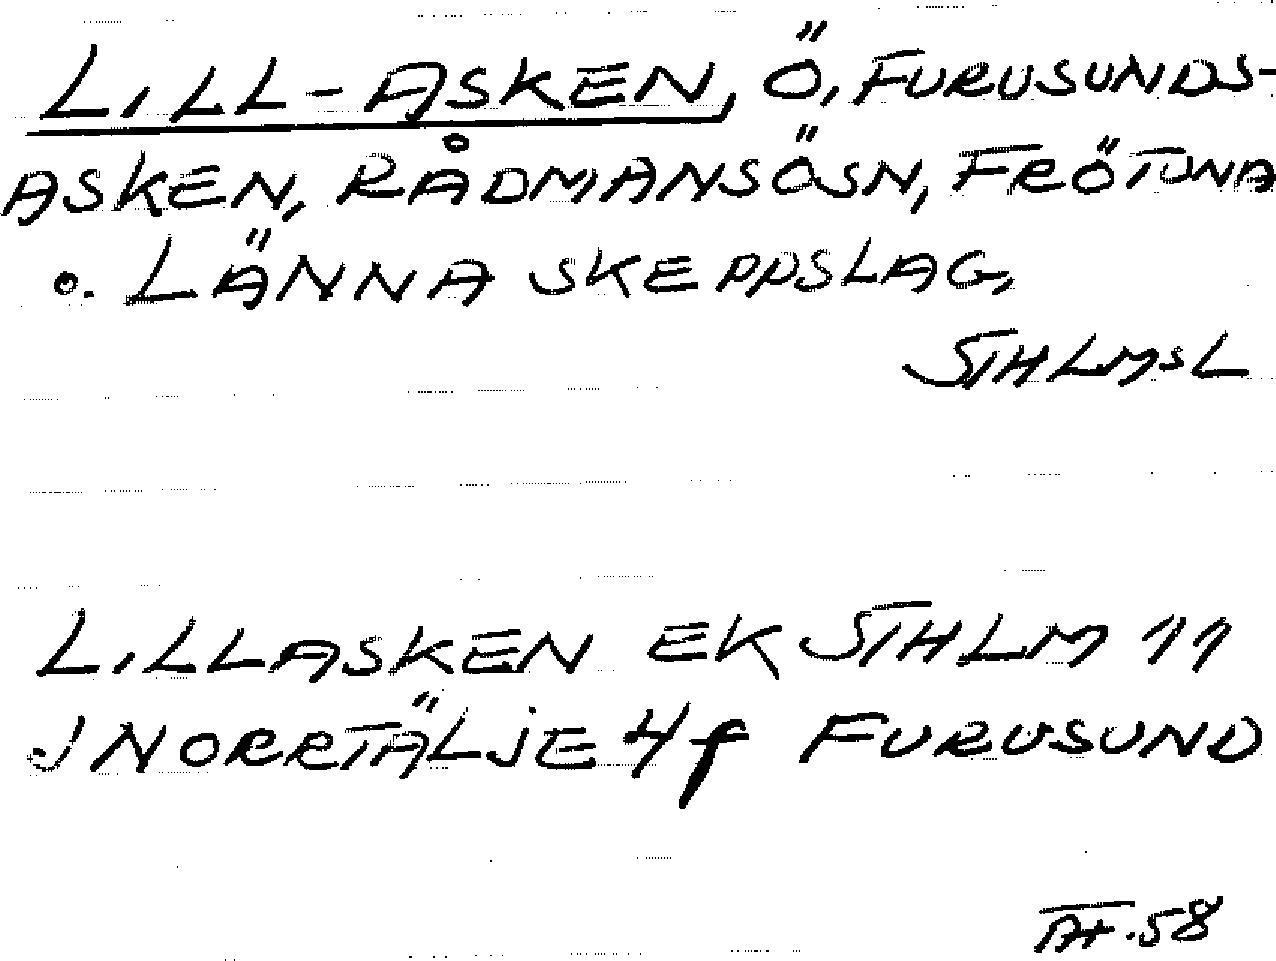 LILL-ASKEN, Ö, FURUSUNDS-
ASKEN, RÅDMANSÖSN, FRÖTUNA
O. LÄNNA SKEPPSLAG,
STHLMSL
LILLASKEN EK STHLM 11
J NORRTÄLJE 4f FURUSUND
AF.58